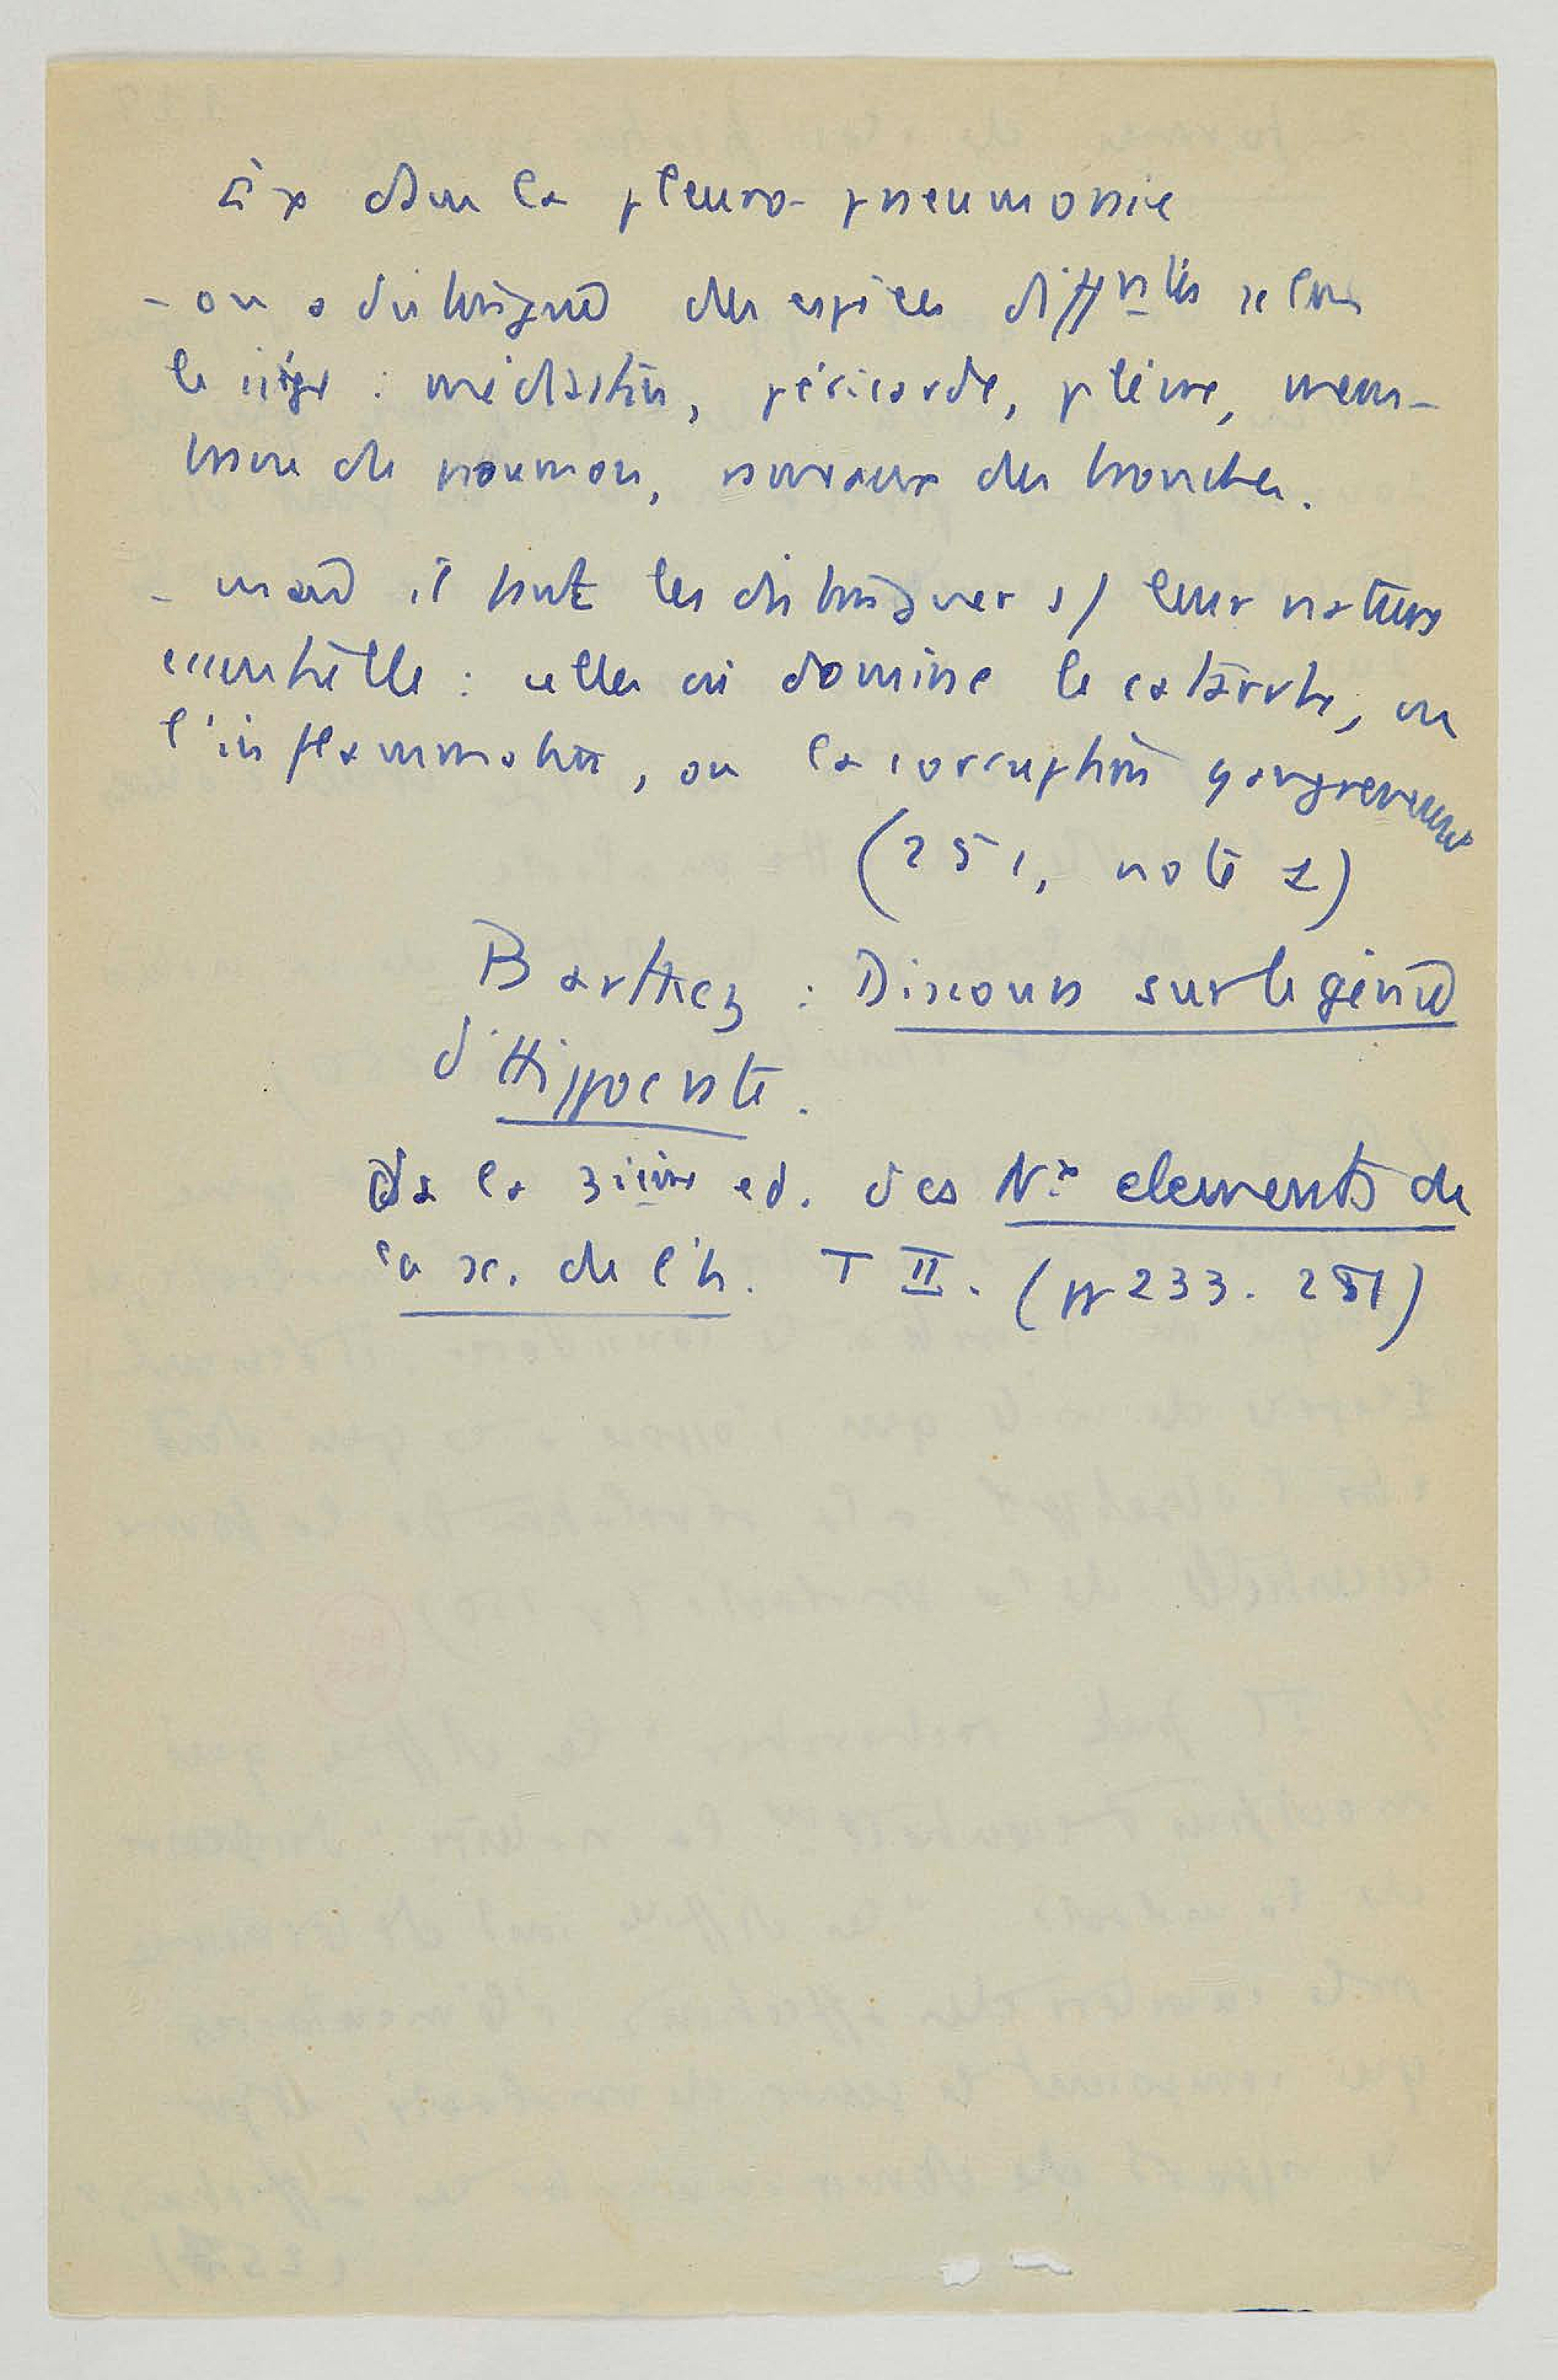 Ex dans la pleuro-pneumonie
- on a distingué des espèces difftes selon
le siège : médiastin, péricarde, plèvre, mem-
brane du poumon, rameaux des bronches.
- mais il faut les distinguer s/ leur nature
essentielle : celles où domine le catarrhe, ou
l'inflammation, ou la corruption gangreneuse
(251, note 1)
Barthez : Discours sur le génie
d'Hippocrate.
Ds la 3ième ed. des Nx elements de
la sc. de l'h. T II. (pp 233. 251)